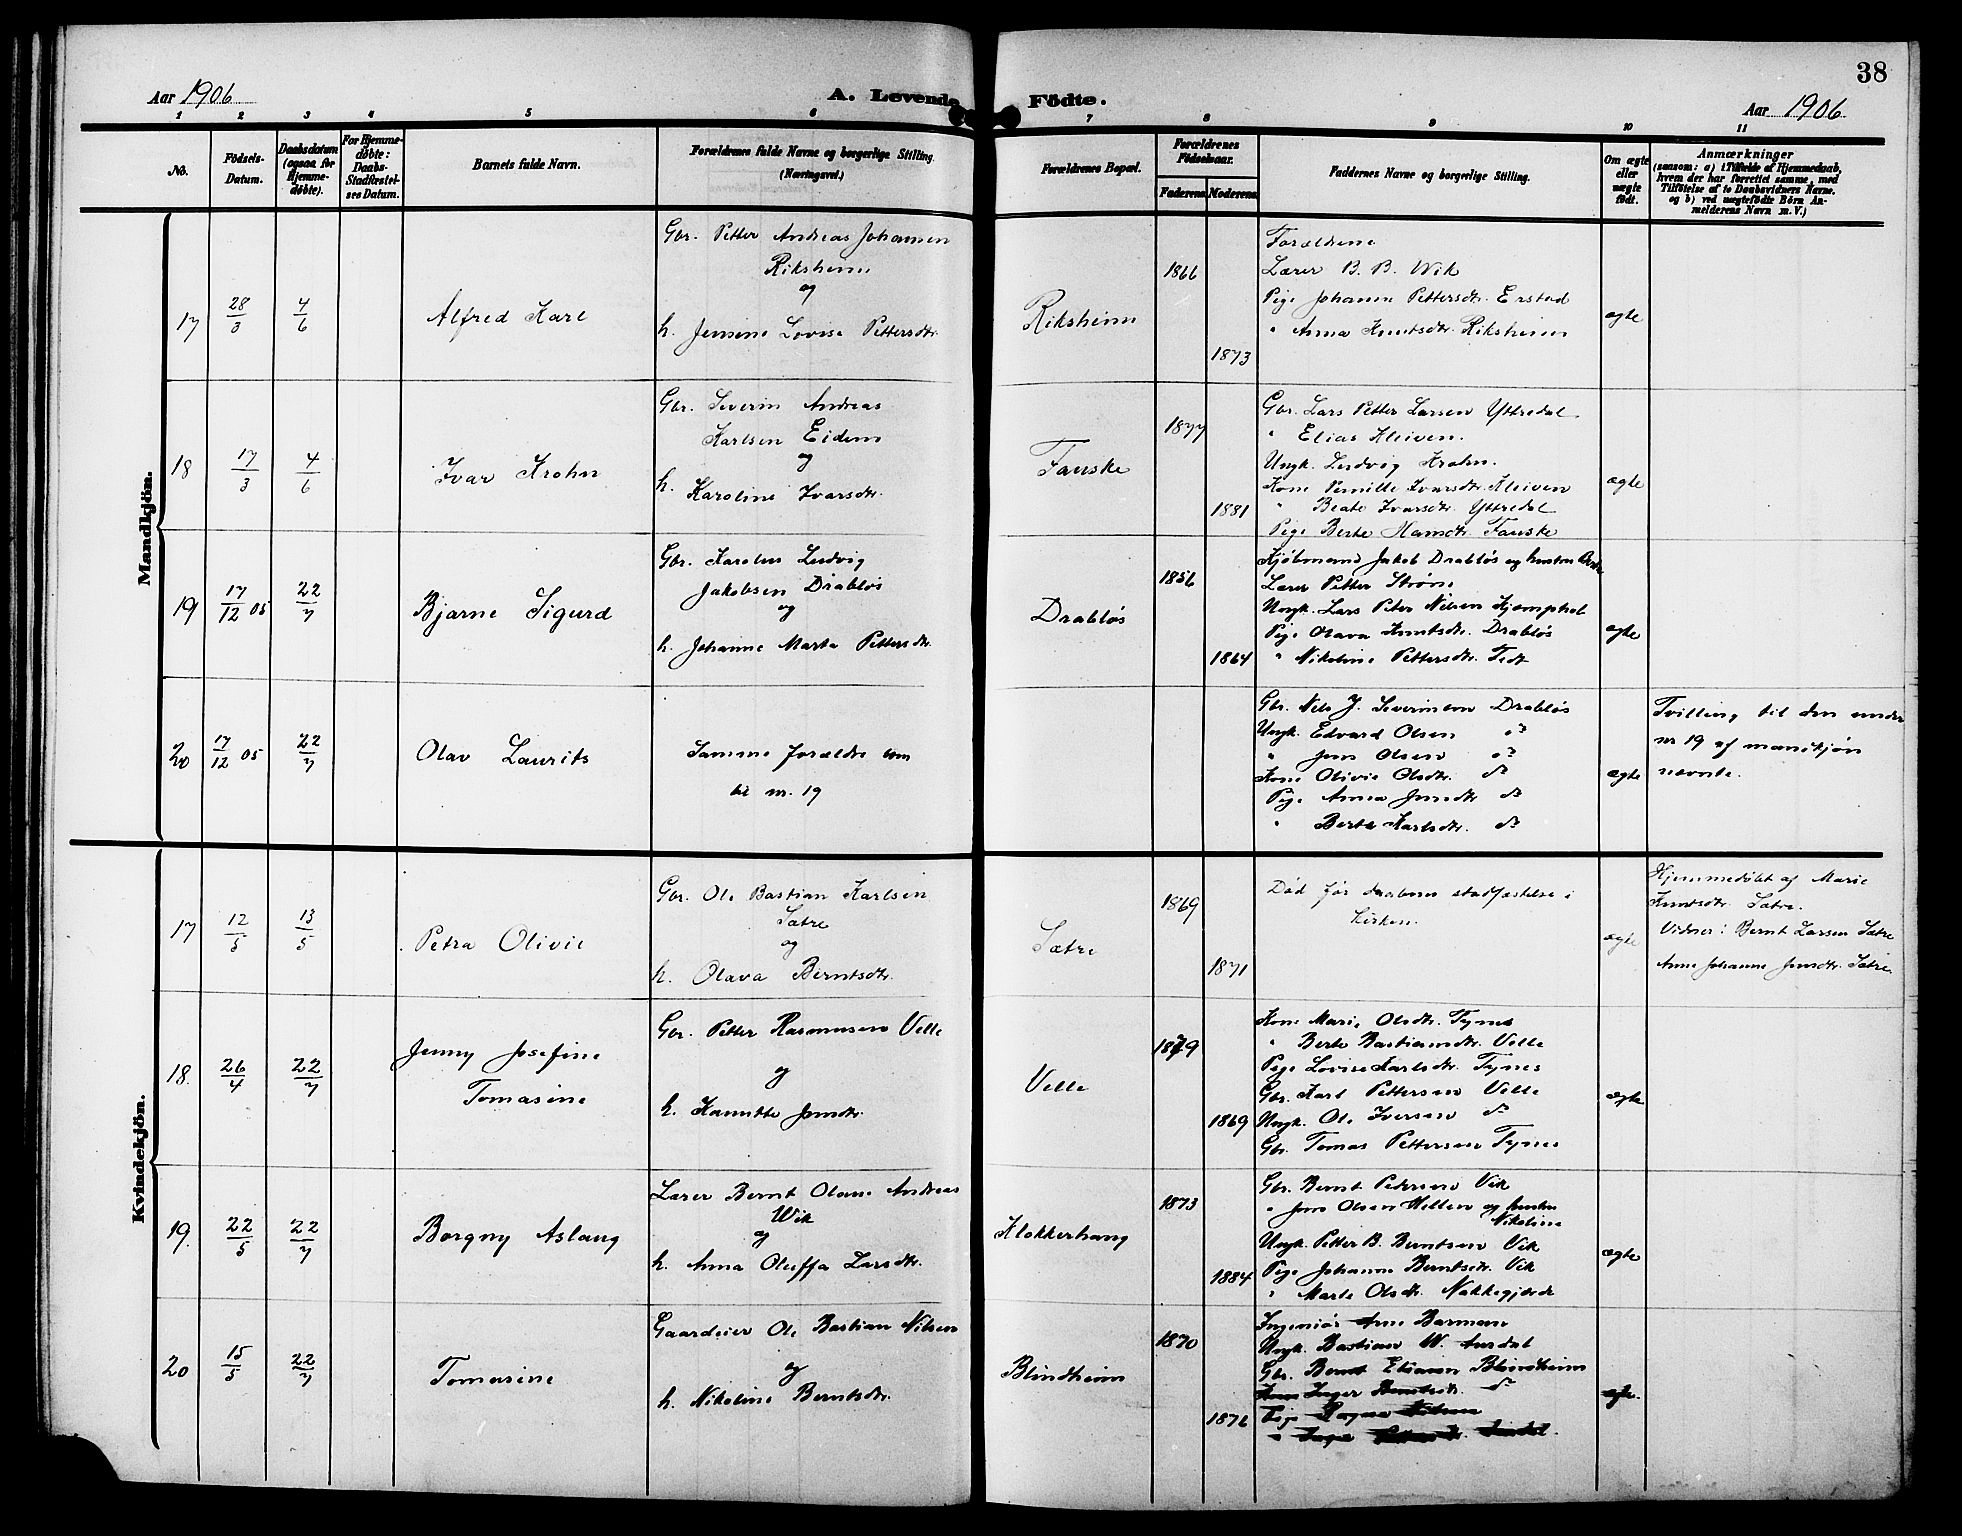 38
Aar 1906
A. Levende Födte.
Aar 1906
1 2 3 4 5 6 7 8 9 10 11
No.
Födsels-
Datum.
Daabsdatum
(ogsaa for
Hjemme-
döbte).
For Hjemme-
döbte:
Daabs-
Stadfæstel-
ses Datum.
Barnets fulde Navn.
Forældrenes fulde Navne og borgerlige Stilling.
(Næringsvei.)
Forældrenes Bopæl.
Forældrenes
Födselsaar.
Faderens
Moderens
Faddernes Navne og borgerlige Stilling.
Om ægte
eller
uægte
født.
Anmærkninger
(saasom: a) i Tilfælde af Hjemmedaab,
hvem der har forrettet samme, med
Tilföielse af to Daabsvidners Navne,
og b) ved uægtefödte Börn An-
melderens Navn m. V.)
Mandkjön.
17
28/3
4/6
Alfred Karl
Gbr. Petter Andreas Johansen
Riksheim
og
h. Jensine Lovise Pettersdtr.
Riksheim
1866
1873
Forældrene
Lærer B. B. Wik
Pige Johanne Pettersdtr. Erstad
" Anna Knutsdtr. Riksheim
ægte
18
17/3
4/6
Ivar Krohn
Gbr. Severin Andreas
Karlsen Eidem
og
h. Karoline Ivarsdtr.
Fauske
1877
1881
Gbr. Lars Petter Larsen Yttredal
" Elias Kleiven.
Ungk. Ludvig Krohn.
Kone Pernille Ivarsdtr. Kleiven
" Beate Ivarsdtr. Yttredal
Pige Berte Hansdtr. Fauske
ægte
19
17/12 05
22/7
Bjarne Sigurd
Gbr. Karolus Ludvig
Jakobsen Drabløs
og
h. Johanne Marta Pettersdtr.
Drabløs
1856
1864
Kjøbmand Jakob Drabløs og hustru
Lærer Petter Strøm
Ungk. Lars Peter Nilsen Kjemphol
Pige Olava Knutsdtr. Drabløs
" Nikoline Pettersdtr.
ægte
20
17/12 05
22/7
Olav Laurits
Samme forældre som
til nr. 19
Gbr. Nils J. Severinsen Drabløs
Ungk. Edvard Olsen do
" Jon Olsen do
Kone Olivie Olsdtr. do
Pige Anna Jonsdtr do
" Berte Karlsdtr. do
ægte
Tvilling til den under
nr 19 af mandkjøn
nævnte.
Kvindekjön.
17
12/5
13/5
Petra Olivie
Gbr. Ole Bastian Karlsen
Sætre
og
h. Olava Berntsdtr.
Sætre
1869
1871
Død før daabens stadfæstelse i
kirken.
ægte
Hjemmedøbt af Marie
Knutsdtr. Sætre.
Vidner: Bernt Larsen Sætre
Anne Johanne Jonsdtr. Sætre
18.
26/4
22/7
Jenny Josefine
Tomasine
Gbr. Petter Rasmusen Velle
og
h. Jonsdtr.
Velle
1879
1869
Kone Marie Olsdtr. Tynes
" Berte Bastiansdtr. Velle
Pige Lovise Karlsdtr. Tynes
Gbr. Karl Pettersen Velle
Ungk. Ole Iversen do
Gbr. Tomas Pettersen Tynes
ægte
19.
22/5
22/7
Borgny Aslaug
Lærer Bernt Olaus Andreas
Wik
og
h. Anna Oluffa Larsdtr.
Klokkerhaug
1873
1884
Gbr. Bernt Pedersen Vik
" Jens Olsen Hellen og hustru
Nikoline
Ungk. Petter B. Berntsen Vik
Pige Johanne Berntsdtr. Vik
" Marte Olsdtr. Nakkegjerde
ægte
20
15/5
22/7
Tomasine
Gaardeier Ole Bastian Nilsen
og
h. Nikoline Berntsdtr.
Blindheim
1870
1876
Ingeniør Arne Barman
Ungk. Bastian W. Aursdal
Gbr. Bernt Eliasen Blindheim
Kone Inger Berntsdtr. do
Pige Nilsen
" Inga
ægte.